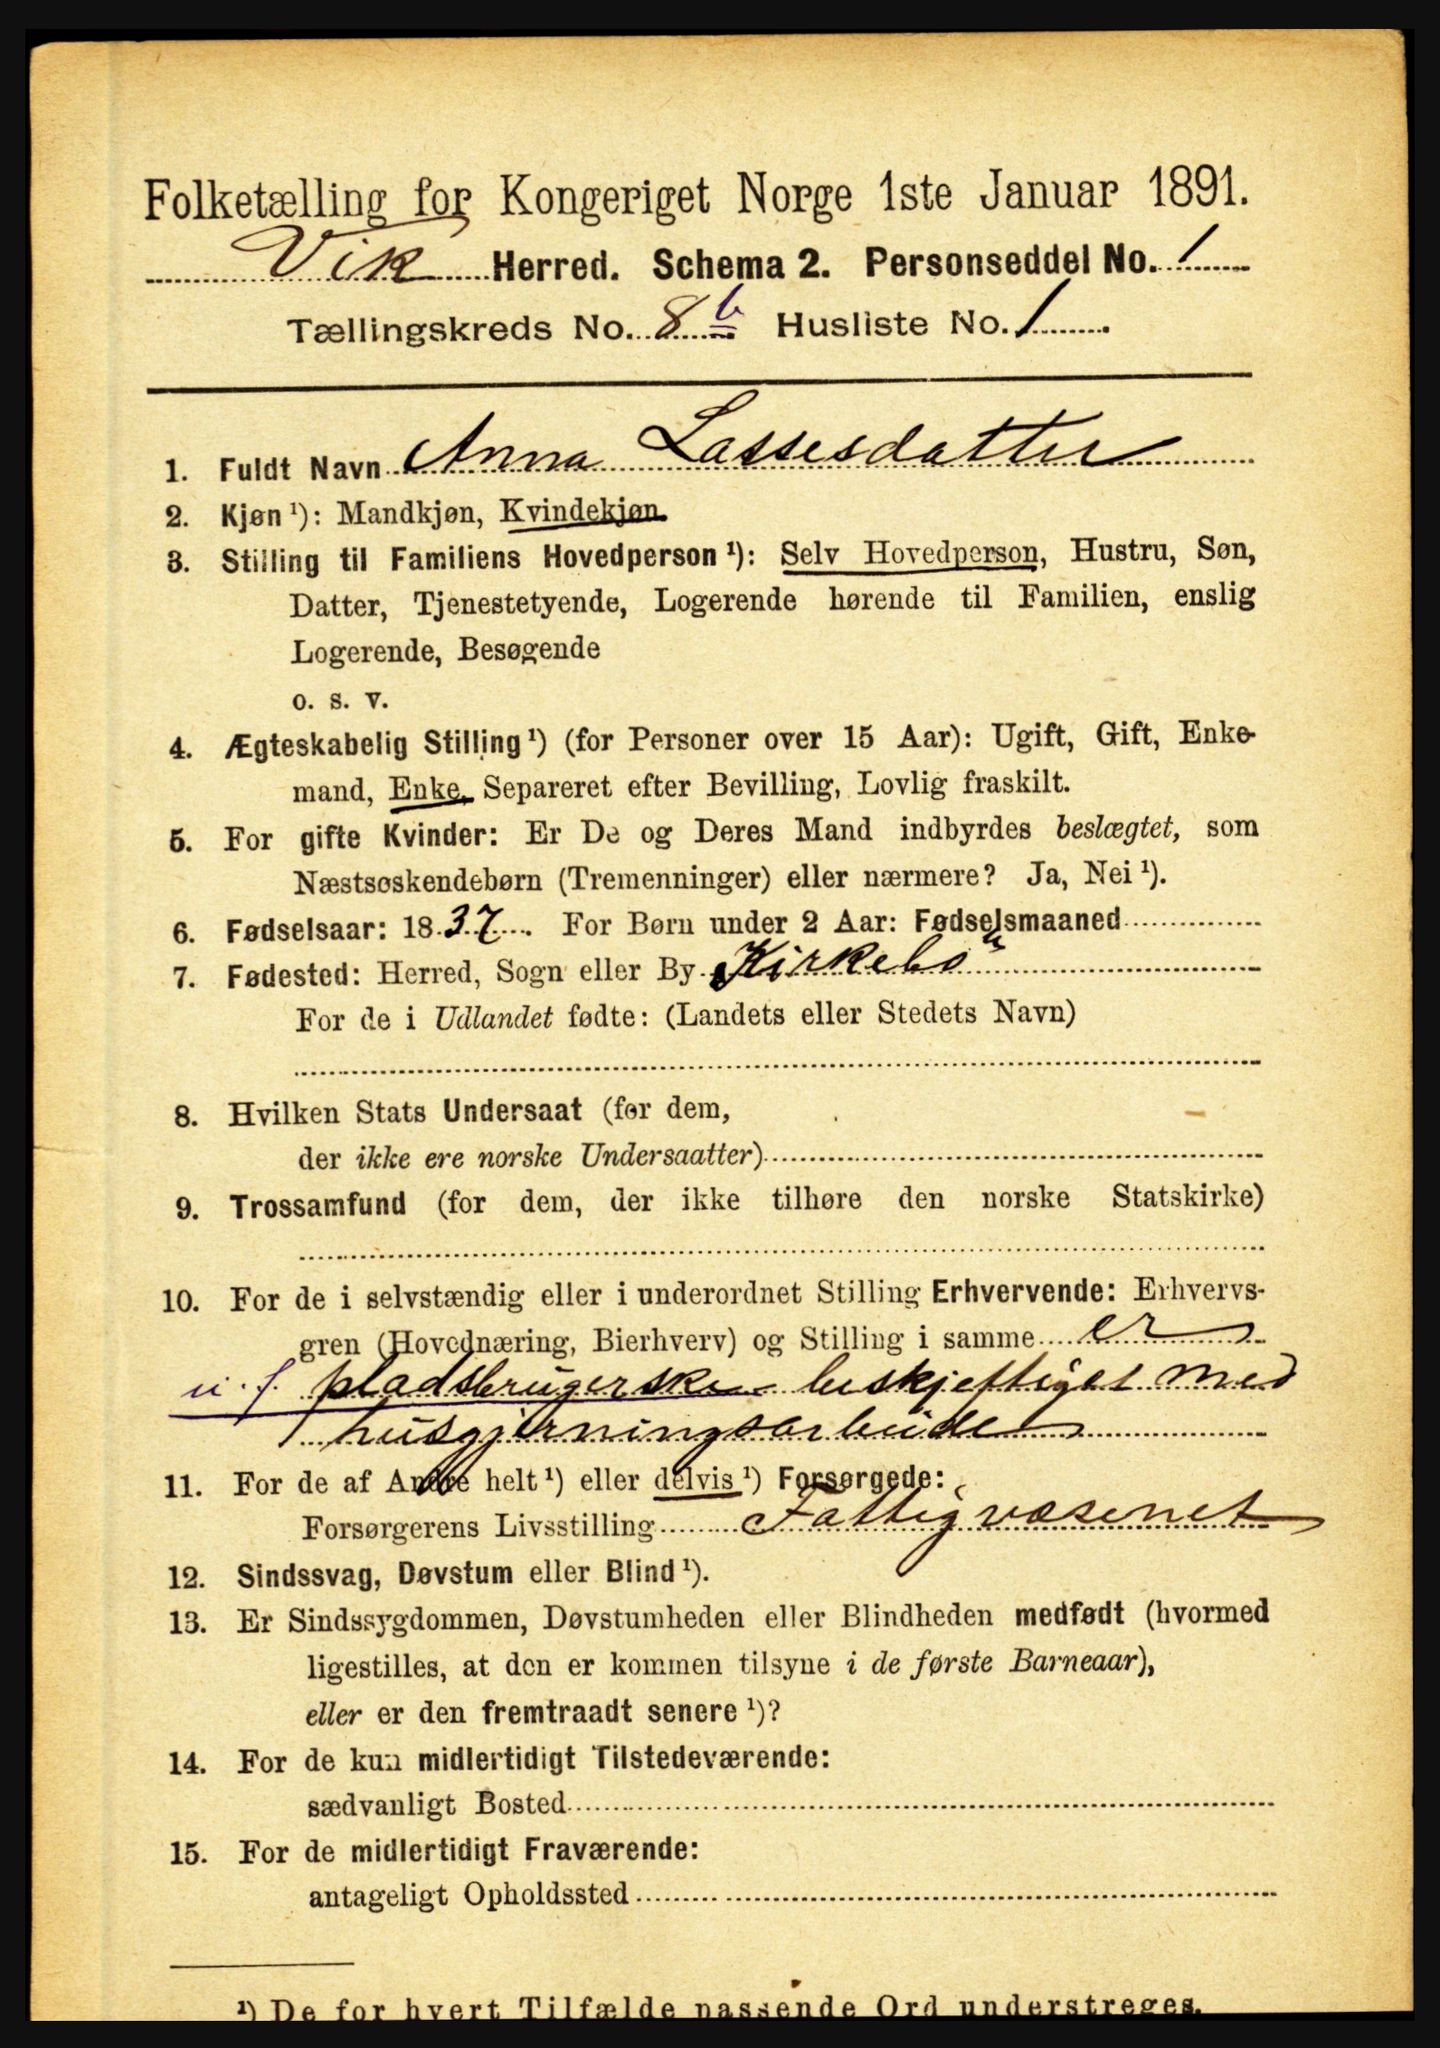 Folketælling for Kongeriget Norge 1ste Januar 1891.
Vik Herred. Schema 2. Personseddel No. 1
Tællingskreds No. 8 b Husliste No. 1
1. Fuldt Navn Anna Lassesdatter
2. Kjøn ¹): Mandkjøn, Kvindekjøn.
3. Stilling til Familiens Hovedperson ¹): Selv Hovedperson, Hustru, Søn,
Datter, Tjenestetyende, Logerende hørende til Familien, enslig
Logerende, Besøgende
o. s. v.
4. Ægteskabelig Stilling ¹) (for Personer over 15 Aar): Ugift, Gift, Enke-
mand, Enke, Separeret efter Bevilling, Lovlig fraskilt.
5. For gifte Kvinder: Er De og Deres Mand indbyrdes beslægtet, som
Næstsøskendebørn (Tremenninger) eller nærmere? Ja, Nei ¹).
6. Fødselsaar: 1837. For Børn under 2 Aar: Fødselsmaaned
7. Fødested: Herred, Sogn eller By Kirkebö
For de i Udlandet fødte: (Landets eller Stedets Navn)
8. Hvilken Stats Undersaat (for dem,
der ikke ere norske Undersaatter)
9. Trossamfund (for dem, der ikke tilhøre den norske Statskirke)
10. For de i selvstændig eller i underordnet Stilling Erhvervende: Erhvervs-
gren (Hovednæring, Bierhverv) og Stilling i samme er
u. f. pladsbrugerske beskjeftiget med
husgjerningsarbeide
11. For de af Andre helt ¹) eller delvis ¹) Forsørgede:
Forsørgerens Livsstilling Fattigvæsenet
12. Sindssvag, Døvstum eller Blind ¹).
13. Er Sindssygdommen, Døvstumheden eller Blindheden medfødt (hvormed
ligestilles, at den er kommen tilsyne i de første Barneaar),
eller er den fremtraadt senere ¹)?
14. For de kun midlertidigt Tilstedeværende:
sædvanligt Bosted
15. For de midlertidigt Fraværende:
antageligt Opholdssted
¹) De for hvert Tilfælde passende Ord understreges.